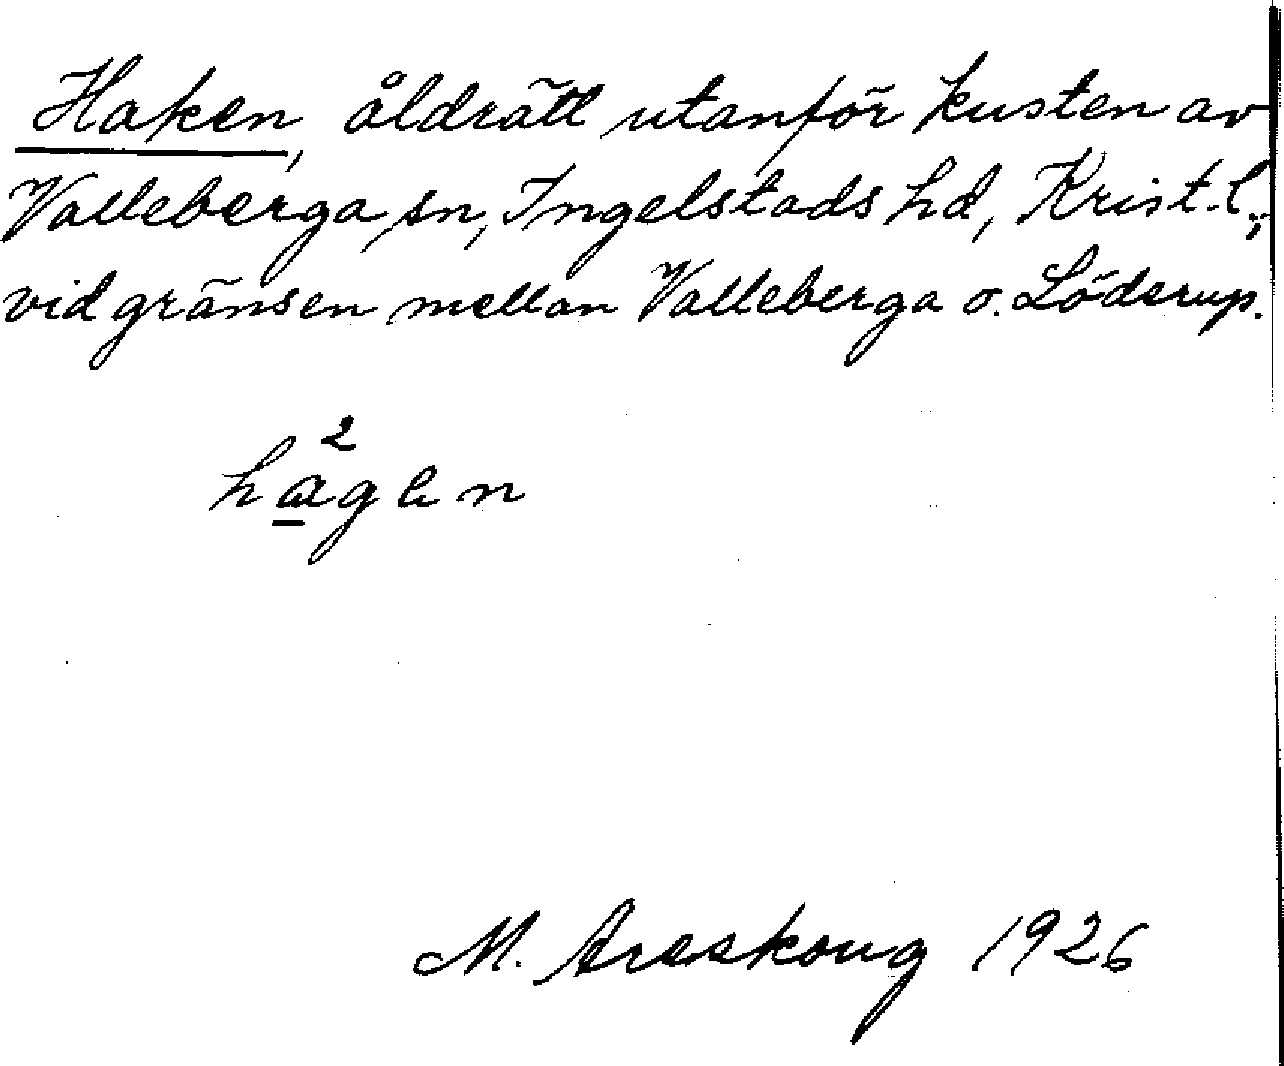 Haken, åldrätt utanför kusten av
Valleberga sn, Ingelstads hd, Krist. l.,
vid gränsen mellan Valleberga o. Löderup.
2
hagen
M. Areskoug 1926